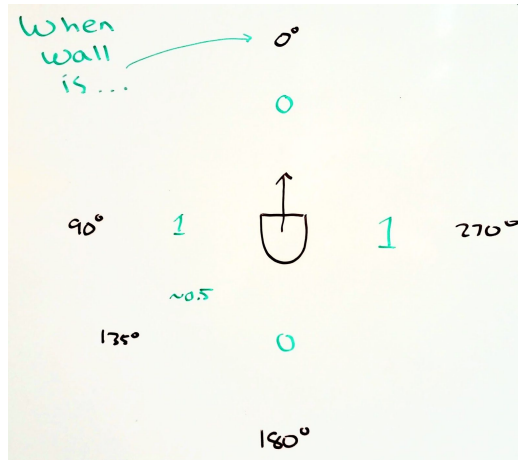 When
wall
is...
0°
0
90°
1
1
270°
~0.5
135°
0
180°